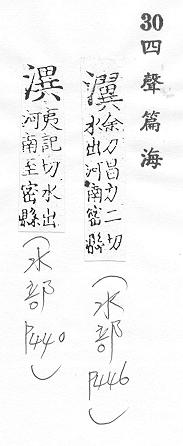 30四聲篇海
瀷余力昌力二切
水出河南密縣
(水部P446)
潩夷記切水出
河南至密縣
(水部P440)